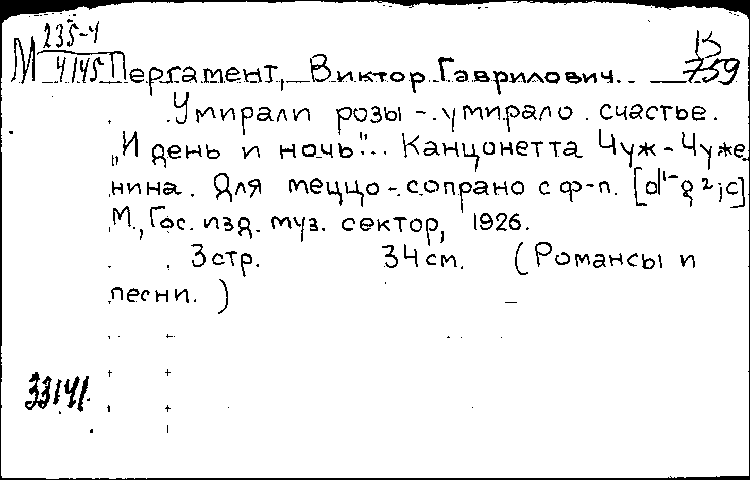 М 235-4
4145
В
759
Пергамент, Виктор Гаврилович.
Умирали розы - умирало счастье.
„И день и ночь"... Канцонетта Чуж-Чуже
нина. Для меццо-сопрано с ф-п. [d¹-g²;c]
М., Гос. изд. муз. сектор, 1926.
3 стр. 34 см. (Романсы и
песни.)
33141